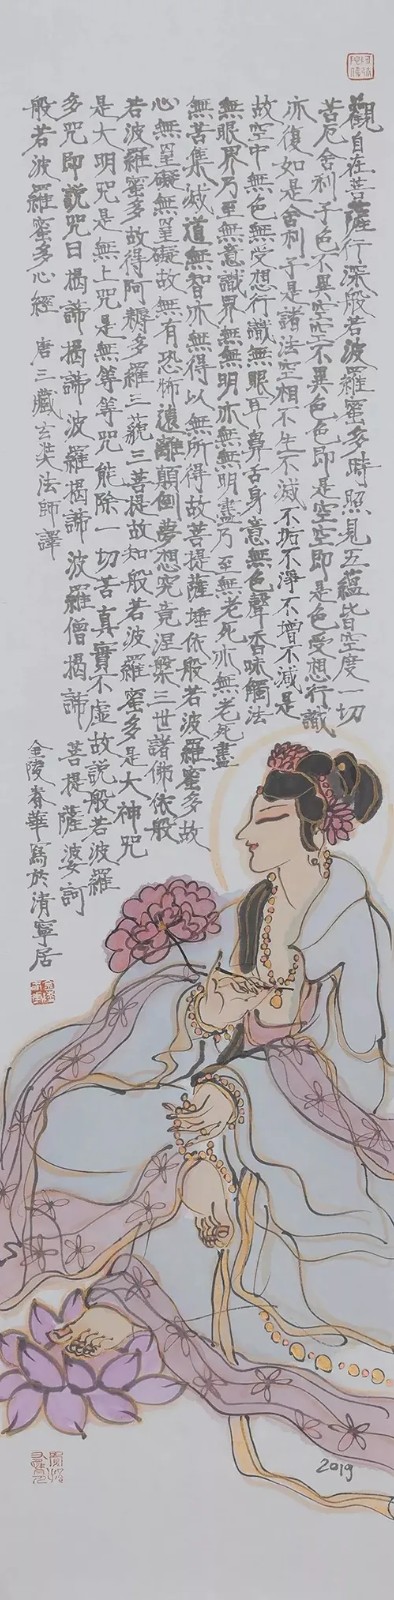 觀自在菩薩行深般若波羅蜜多時照見五蘊皆空度一切
苦厄舍利子色不異空空不異色色即是空空即是色受想行識
亦復如是舍利子是諸法空相不生不滅不垢不淨不增不減是
故空中無色無受想行識無眼耳鼻舌身意無色聲香味觸法
無眼界乃至無意識界無無明亦無無明盡乃至無老死亦無老死盡
無苦集滅道無智亦無得以無所得故菩提薩埵依般若波羅蜜多故
心無罣礙無罣礙故無有恐怖遠離顛倒夢想究竟涅槃三世諸佛依般
若波羅蜜多故得阿耨多羅三藐三菩提故知般若波羅蜜多是大神咒
是大明咒是無上咒是無等等咒能除一切苦真實不虛故說般若波羅
多咒即說咒曰揭諦揭諦波羅揭諦波羅僧揭諦菩提薩婆訶
般若波羅蜜多心經 唐三藏玄奘法師譯
金陵春華寫於清寧居
2019